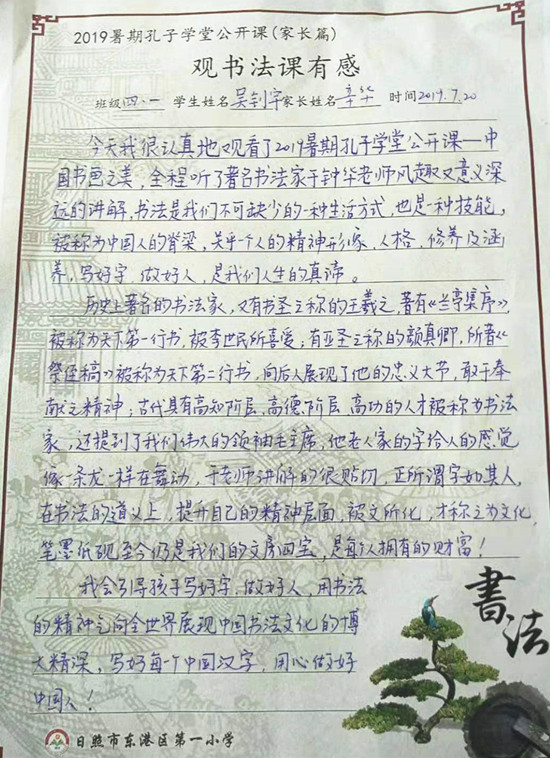 2019暑期孔子学堂公开课(家长篇)
观书法课有感
班级四.一 学生姓名吴钊宇家长姓名辛华 时间2019.7.20
今天我很认真地观看了2019暑期孔子学堂公开课—中
国书画之美,全程听了著名书法家于钟华老师风趣又意义深
远的讲解,书法是我们不可缺少的一种生活方式,也是一种技能,
被称为中国人的脊梁,关乎个人的精神形像,人格,修养及涵
养,写好字 做好人,是我们人生的真谛。
历史上著名的书法家,又有书圣之称的王羲之,著有《兰亭集序》,
被称为天下第一行书,被李世民所喜爱;有亚圣之称的颜真卿,所著《
祭侄稿》被称为天下第二行书,向后人展现了他的忠义大节,敢于奉
献之精神;古代具有高知阶层,高德阶层 高功的人才被称为书法
家,还提到了我们伟大的领袖毛主席,他老人家的字给人的感觉
像一条龙一样在舞动,于老师讲解的很贴切,正所谓字如其人,
在书法的道义上,提升自己的精神层面,被文所化,才称之为文化,
笔墨纸砚至今仍是我们的文房四宝,是每个人拥有的财富!
我会引导孩子写好字,做好人,用书法
的精神气向全世界展现中国书法文化的博
大精深,写好每个中国汉字,用心做好
中国人!
書法
日照市东港区第一小学